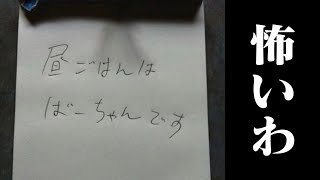 昼ごはんは
ばーちゃんです
怖いわ